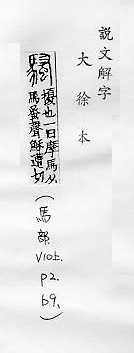 說文解字
大徐本
騷
擾也一曰摩馬从
馬蚤聲穌遭切
(馬部
V10上.
P2.
69.)